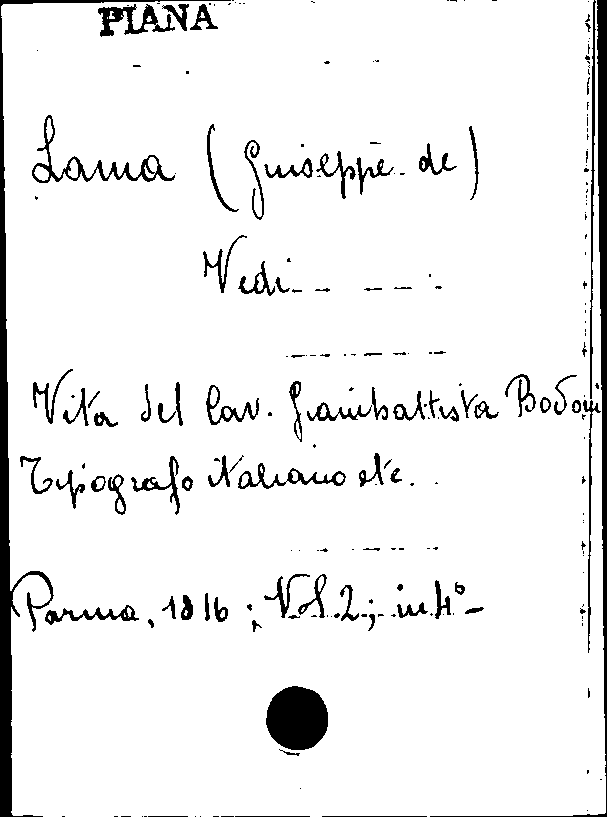 PIANA
Lama (Giuseppe de)
Vedi
Vita del Cav. Giambattista Bodoni
Tipografo italiano etc.
Parma, 1816; Vol. 2; in 4°